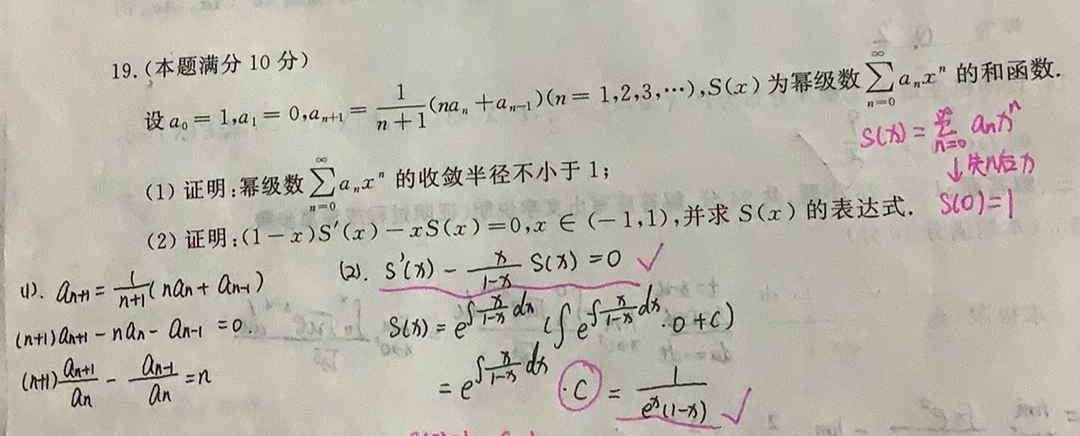 19.(本题满分 10 分)
设 a₀ = 1,a₁ = 0,aₙ₊₁ = 1/(n+1) (naₙ + aₙ₋₁)(n = 1,2,3,⋯),S(x) 为幂级数 ∑_{n=0}^{∞} aₙxⁿ 的和函数.
S(x) = ∑_{n=0}^{∞} aₙxⁿ
(1) 证明:幂级数 ∑_{n=0}^{∞} aₙxⁿ 的收敛半径不小于 1;
↓先n后
S(0)=1
(2) 证明:(1−x)S′(x)−xS(x)=0,x ∈ (−1,1),并求 S(x) 的表达式.
(1). aₙ₊₁ = 1/(n+1) (naₙ + aₙ₋₁)
(n+1)aₙ₊₁ − naₙ − aₙ₋₁ = 0.
(n+1) aₙ₊₁/aₙ − aₙ₋₁/aₙ = n
(2). S′(x) − x/(1−x) S(x) = 0 ✓
S(x) = e^{∫ x/(1−x) dx} (∫ e^{∫ x/(1−x) dx} · 0 + C)
= e^{∫ x/(1−x) dx} · C = 1/(eˣ(1−x)) ✓